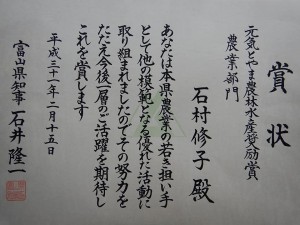 賞状
元気とやま農林水産奨励賞
農業部門
石村修子殿
あなたは本県農業の若き担い手
として他の模範となる優れた活動に
取り組まれましたのでその努力を
たたえ今後一層のご活躍を期待し
これを賞します
平成三十一年二月十五日
富山県知事 石井隆一